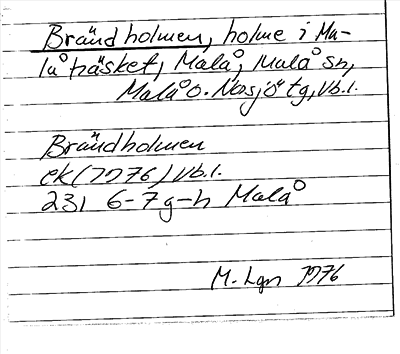 Brändholmen, holme i Ma-
låträsket, Malå, Malå sn,
Malå o. Norsjö tg, Vb.l.
Brändholmen
ek (1976) Vb.l.
23I 6-7g-h Malå
M. Lgn 1976